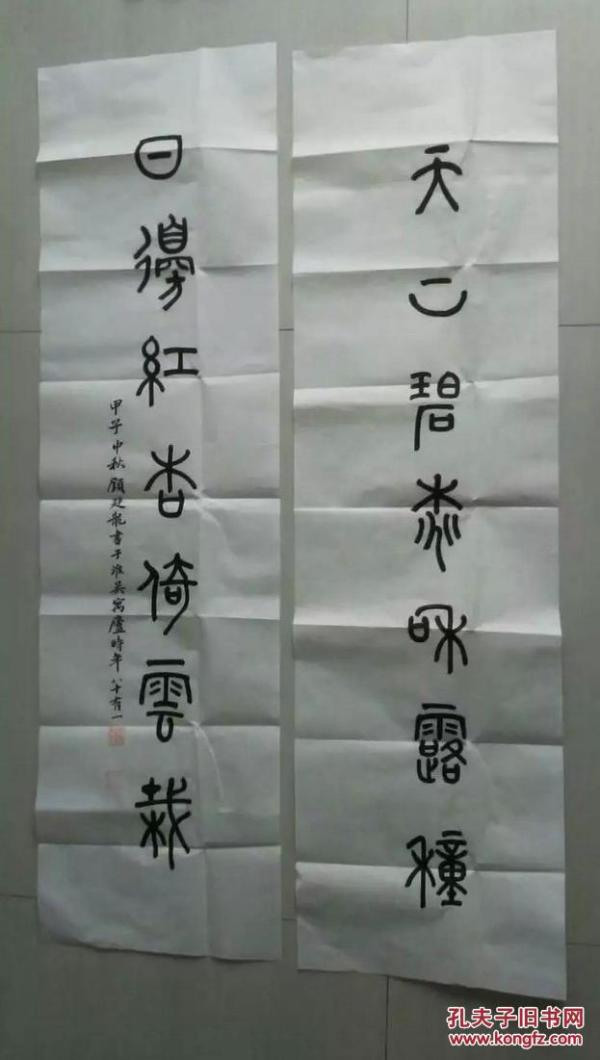 天二碧桃和露種
日邊紅杏倚雲栽
甲子中秋 顧廷龍書于淮吳寓廬時年八十有一
孔夫子旧书网
kongfz.com